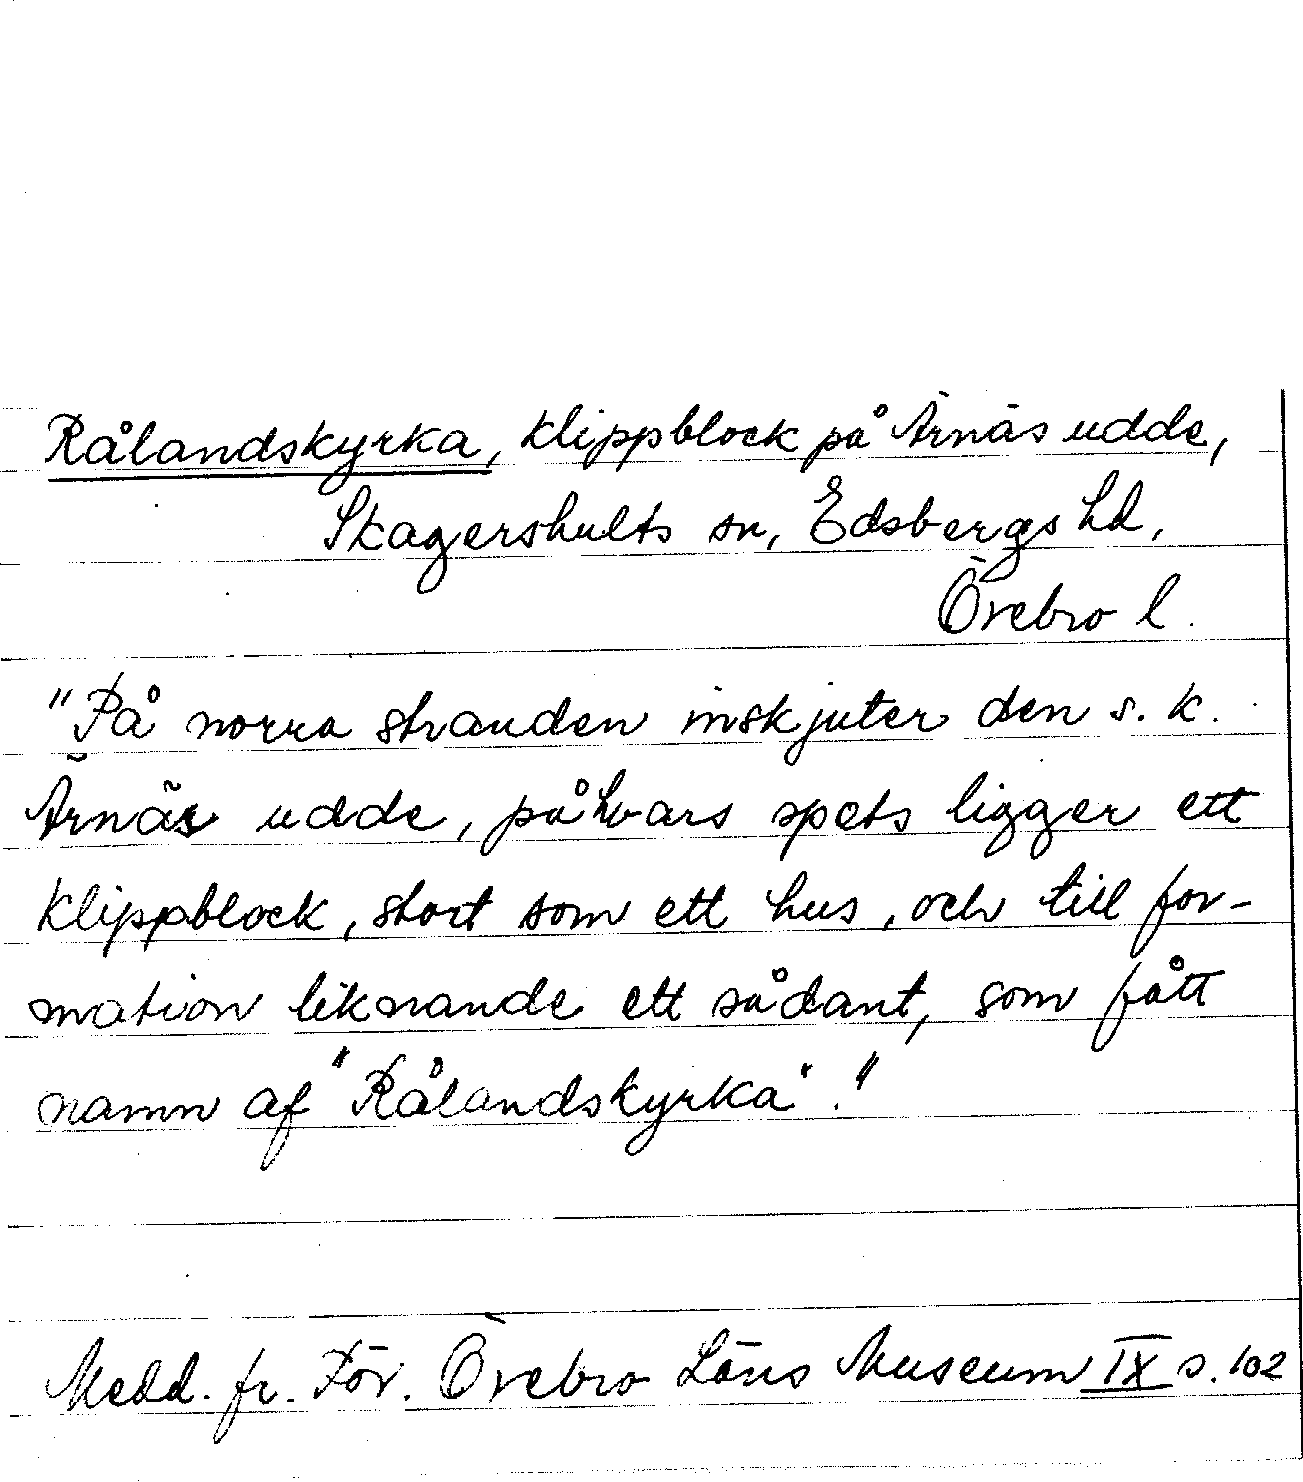 Rålandskyrka, klippblock på Ärnäs udde,
Skagershults sn, Edsbergs hd,
Örebro l.
"På norra stranden inskjuter den s. k.
Ärnäs udde, på hvars spets ligger ett
klippblock, stort som ett hus, och till for-
mation liknande ett sådant, som fått
namn af "Rålandskyrka"."
Medd. fr. För. Örebro Läns Museum IX s. 102